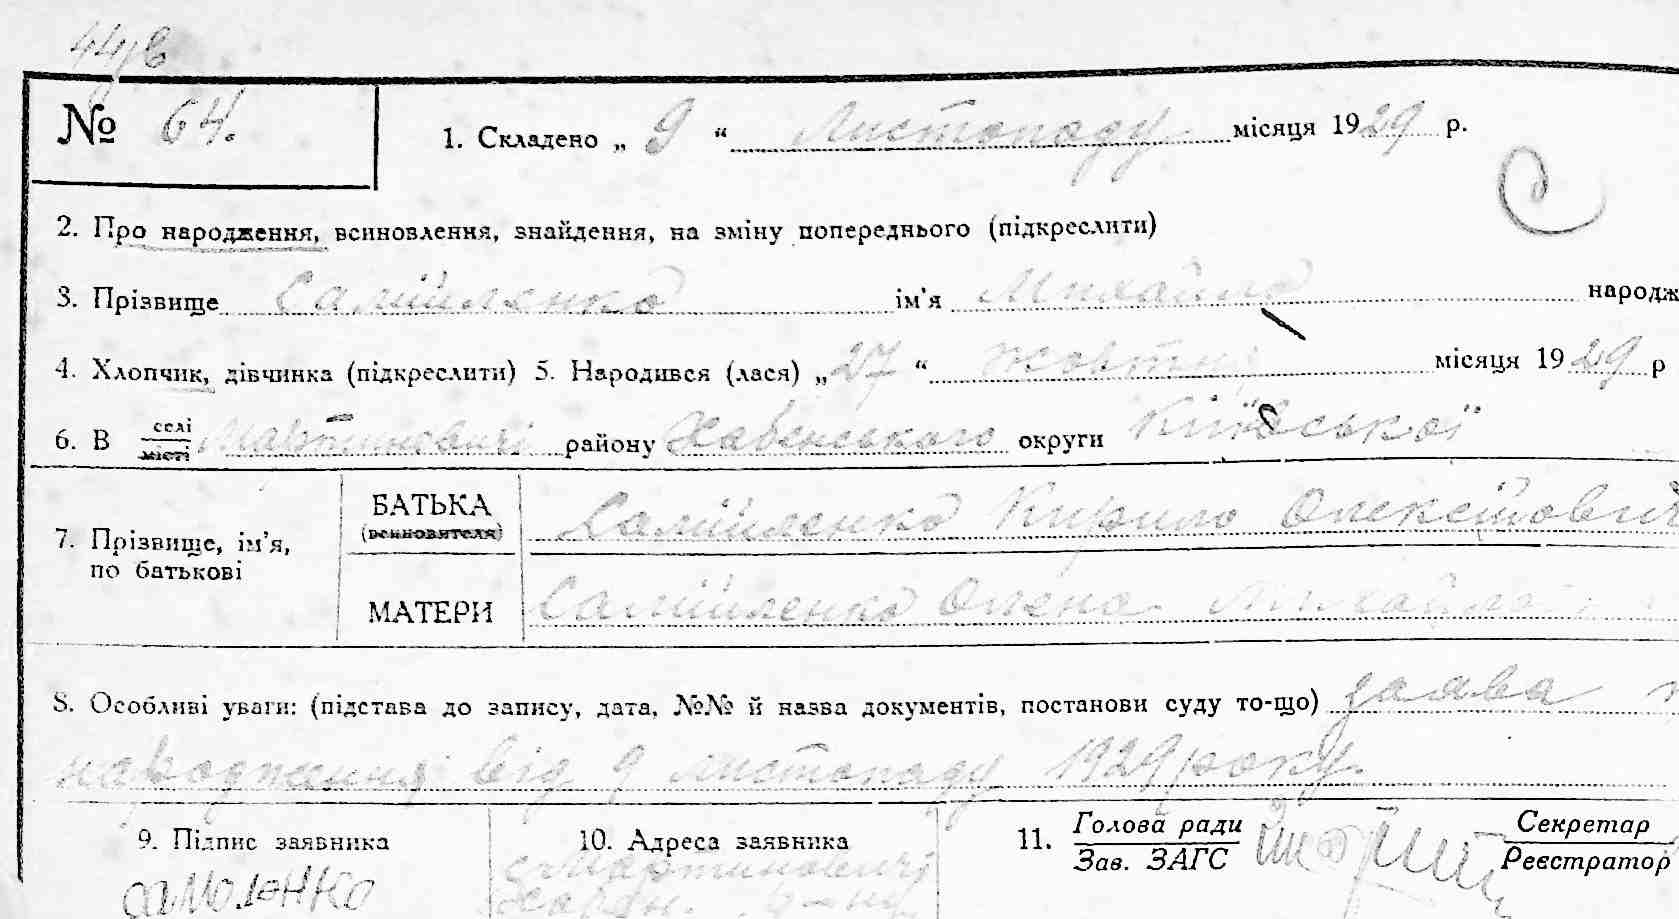 № 64.
1. Складено „ 9 “ Листопаду місяця 1929 р.
2. Про народження, всиновлення, знайдення, на зміну попереднього (підкреслити)
3. Прізвище Самійленко ім'я Михайло народж
4. Хлопчик, дівчинка (підкреслити) 5. Народився (лася) „ 27 “ жовтня місяця 1929 р
6. В селі місті Мартиновичі району Хабенського округи Київської
7. Прізвище, ім'я, по батькові
БАТЬКА (всиновителя) Самійленко Кирило Олексійович
МАТЕРИ Самійленко Олена Михайло
8. Особливі уваги: (підстава до запису, дата, №№ й назва документів, постанови суду то-що) заява
народження від 9 листопаду 1929 року.
9. Підпис заявника 10. Адреса заявника 11. Голова ради Секретар
Зав. ЗАГС Реєстратор
самоленко с. Мартиновичі